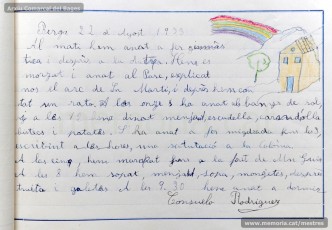 Arxiu Comarcal del Bages
Berga 22 d'Agost 1933
Al matí hem anat a fer gimnàs
tica i després a la dutxa. Hem es
morzat i anat al Parc, explicat
nos el arc de Sa Martí, i després hem can
tat un rato. A les onze s'ha anat als banys de sol,
a les dinat menjant, escudella, carsandolla
i patates. S'ha anat a fer migdiada fins les 3,
escribint a les hores, una redacció a la Colònia.
A les cinc, hem marxat fins a la font de
A les 8 hem sopat, menjant, sopa, mongetes,
truita i galetas A les 9.30 hem anat a dormir
Consuelo Rodríguez
www.memoria.cat/mestres